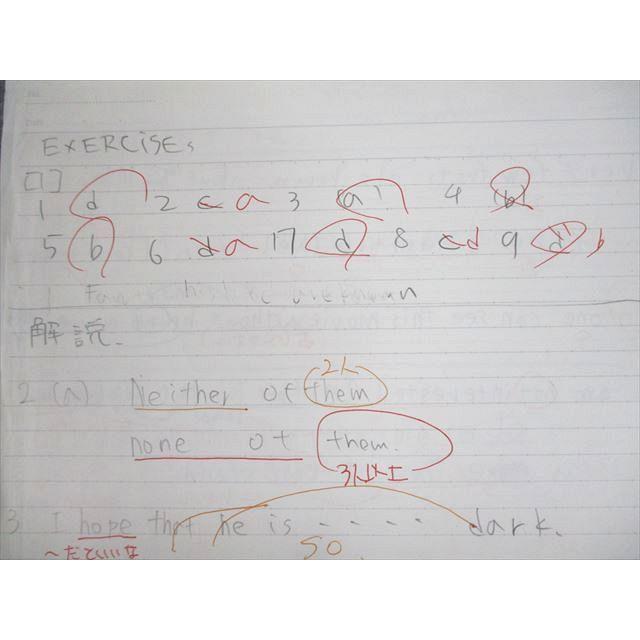 EXERCISEs
[1]
1 d 2 c a 3 (a) 4 (b)
5 b 6 d a 17 d 8 c d 9 d b
解説.
2人
2 (a) Neither of them
none of them.
3人以上
3 I hope that he is ‐ ‐ ‐ ‐ dark.
〜だといいな so